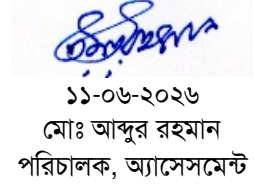 ১১-০৬-২০২৬
মোঃ আব্দুর রহমান
পরিচালক, অ্যাসেসমেন্ট